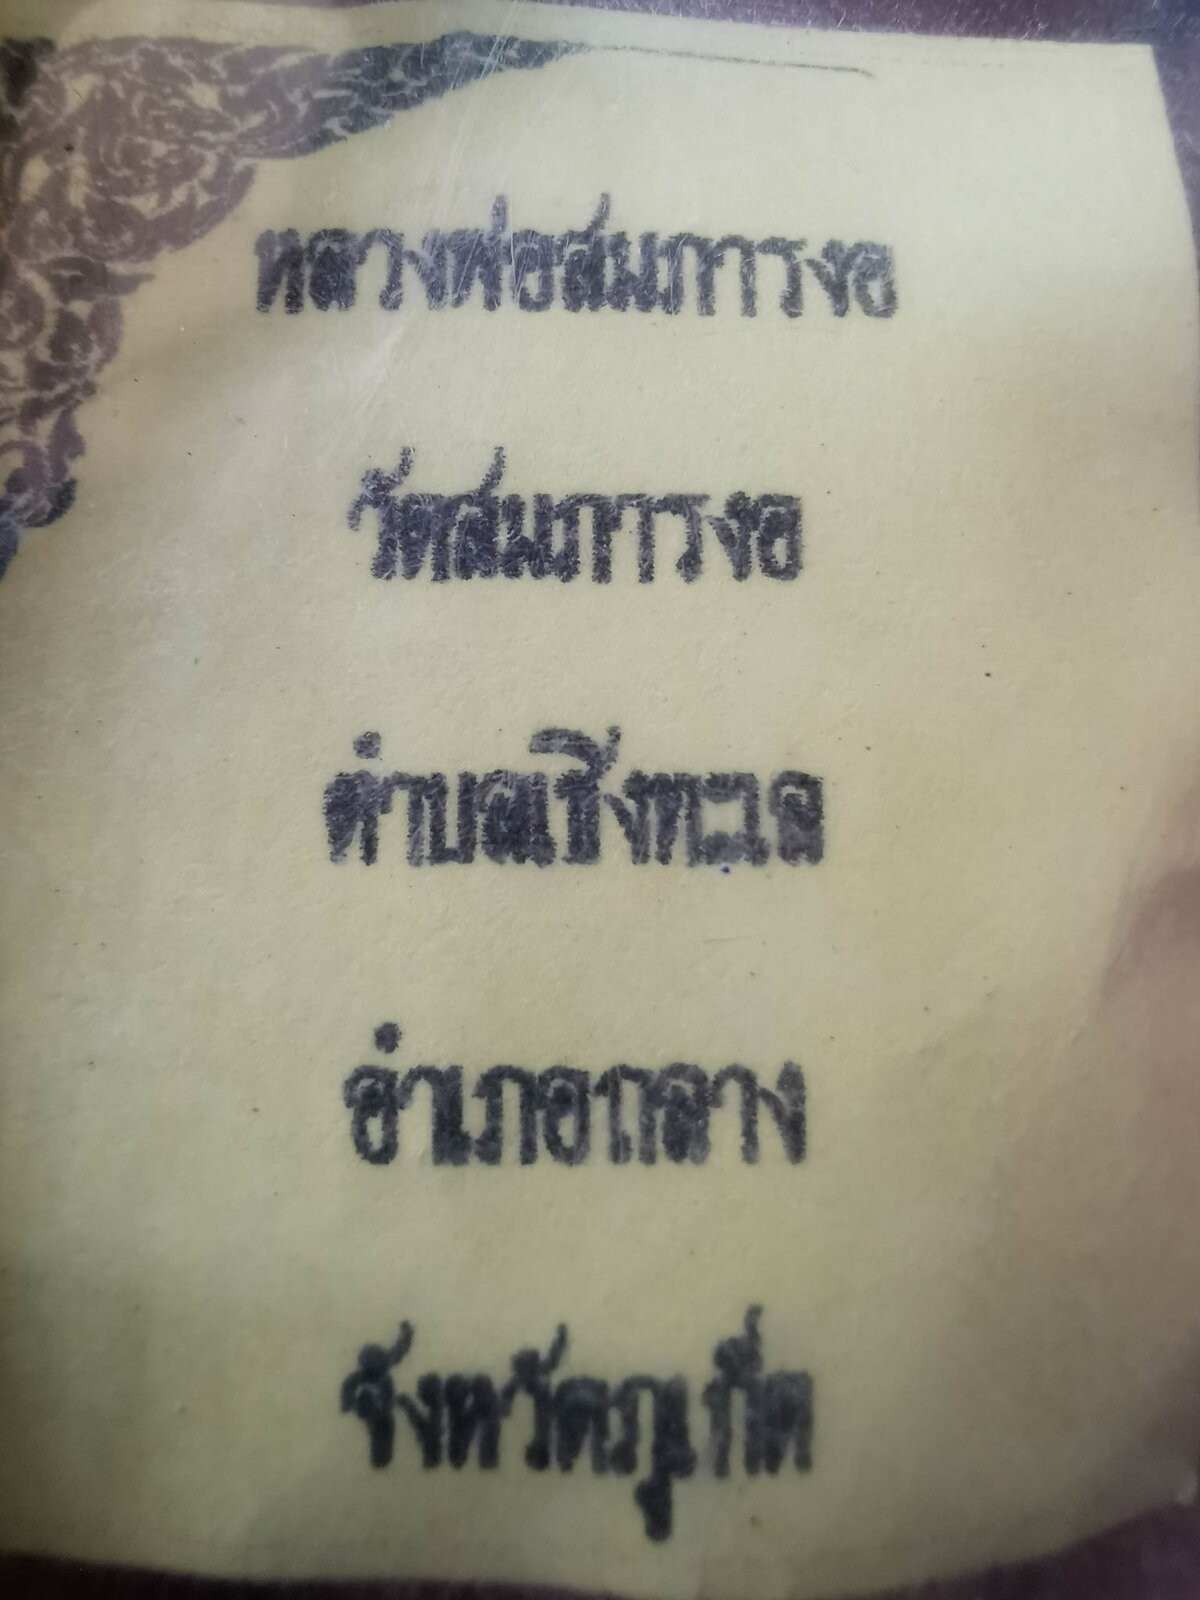 หลวงพ่อสมภารงอ
วัดสมภารงอ
ตำบลเชิงทะเล
อำเภอถลาง
จังหวัดภูเก็ต